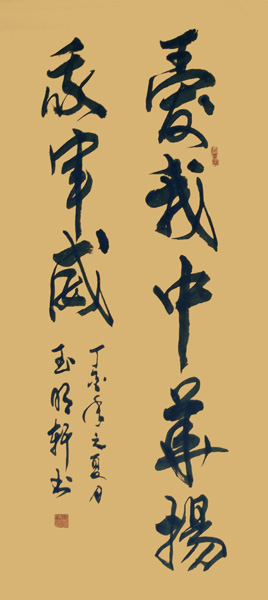 愛我中華揚
我軍威
丁亥年之夏月
明軒书